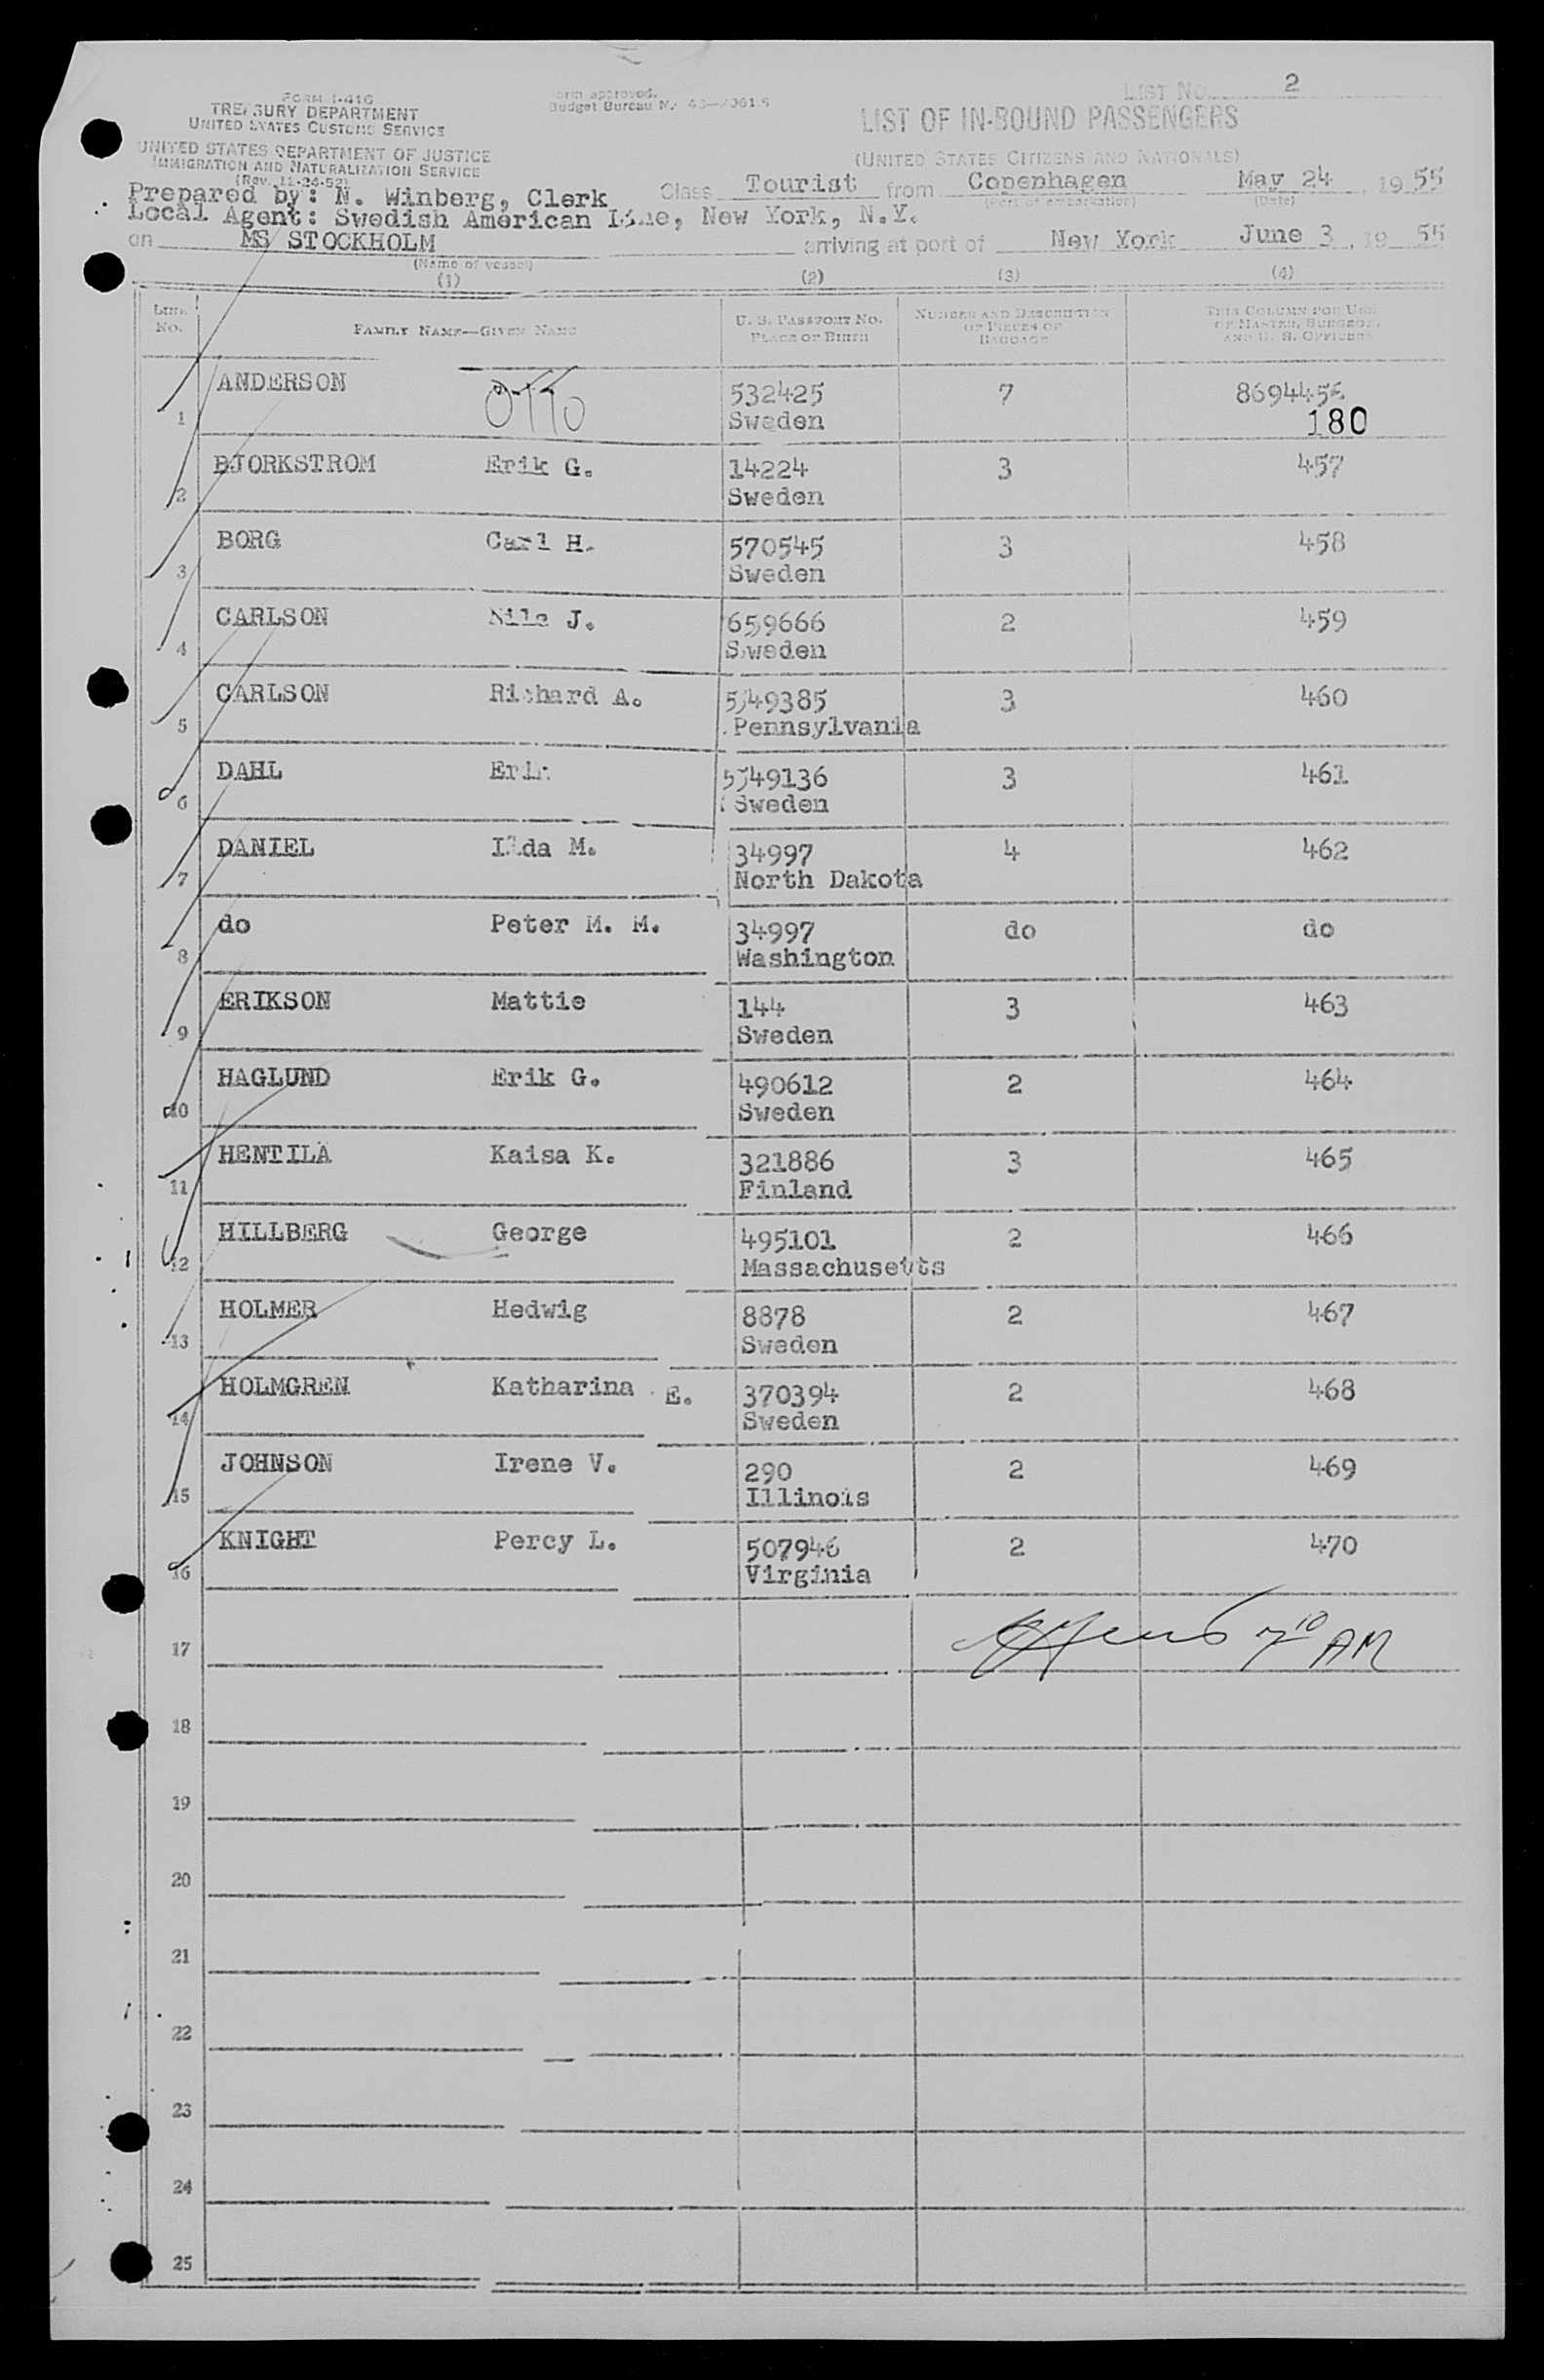 FORM I-416
TREASURY DEPARTMENT
UNITED STATES CUSTOMS SERVICE
UNITED STATES DEPARTMENT OF JUSTICE
IMMIGRATION AND NATURALIZATION SERVICE
(Rev. 11-24-52)
Form approved.
Budget Bureau No.
LIST NO. 2
LIST OF IN-BOUND PASSENGERS
(UNITED STATES CITIZENS AND NATIONALS)
Prepared by: N. Winberg, Clerk Class Tourist from Copenhagen May 24, 1955
(Port of embarkation) (Date)
Local Agent: Swedish American Line, New York, N.Y.
on MS STOCKHOLM arriving at port of New York June 3, 1955
(Name of vessel)
(1) (2) (3) (4)
LINE No. FAMILY NAME—GIVEN NAME U. S. PASSPORT NO. PLACE OF BIRTH NUMBER AND DESCRIPTION OF PIECES OF BAGGAGE THIS COLUMN FOR USE OF MASTER, SURGEON, AND U. S. OFFICERS
1 ANDERSON OTTO 532425 7 8694456
Sweden 180
2 BJORKSTROM Erik G. 14224 3 457
Sweden
3 BORG Carl H. 570545 3 458
Sweden
4 CARLSON Nils J. 659666 2 459
Sweden
5 CARLSON Richard A. 549385 3 460
Pennsylvania
6 DAHL Erik 549136 3 461
Sweden
7 DANIEL Ilda M. 34997 4 462
North Dakota
8 do Peter M. M. 34997 do do
Washington
9 ERIKSON Mattie 144 3 463
Sweden
10 HAGLUND Erik G. 490612 2 464
Sweden
11 HENTILA Kaisa K. 321886 3 465
Finland
12 HILLBERG George 495101 2 466
Massachusetts
13 HOLMER Hedwig 8878 2 467
Sweden
14 HOLMGREN Katharina E. 370394 2 468
Sweden
15 JOHNSON Irene V. 290 2 469
Illinois
16 KNIGHT Percy L. 507946 2 470
Virginia
17 7 10 AM
18
19
20
21
22
23
24
25